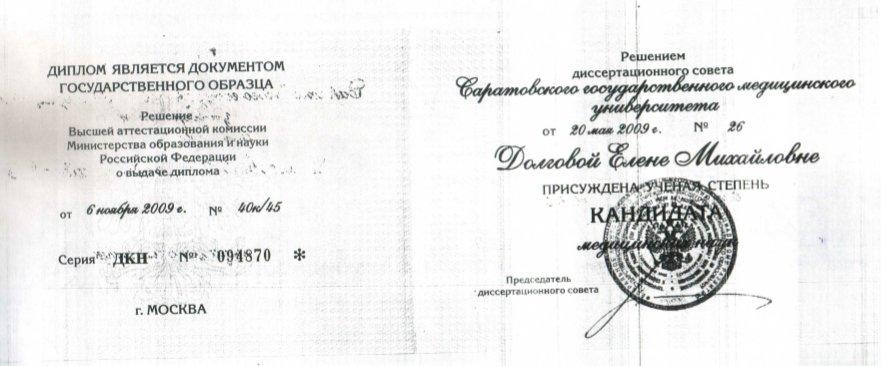 ДИПЛОМ ЯВЛЯЕТСЯ ДОКУМЕНТОМ
ГОСУДАРСТВЕННОГО ОБРАЗЦА
Решение
Высшей аттестационной комиссии
Министерства образования и науки
Российской Федерации
о выдаче диплома
от 6 ноября 2009 г. № 40к/45
Серия ДКН № 094870 *
г. МОСКВА
Решением
диссертационного совета
Саратовского государственного медицинского
университета
от 20 мая 2009 г. № 26
Долговой Елене Михайловне
ПРИСУЖДЕНА УЧЕНАЯ СТЕПЕНЬ
КАНДИДАТА
медицинских наук
Председатель
диссертационного совета